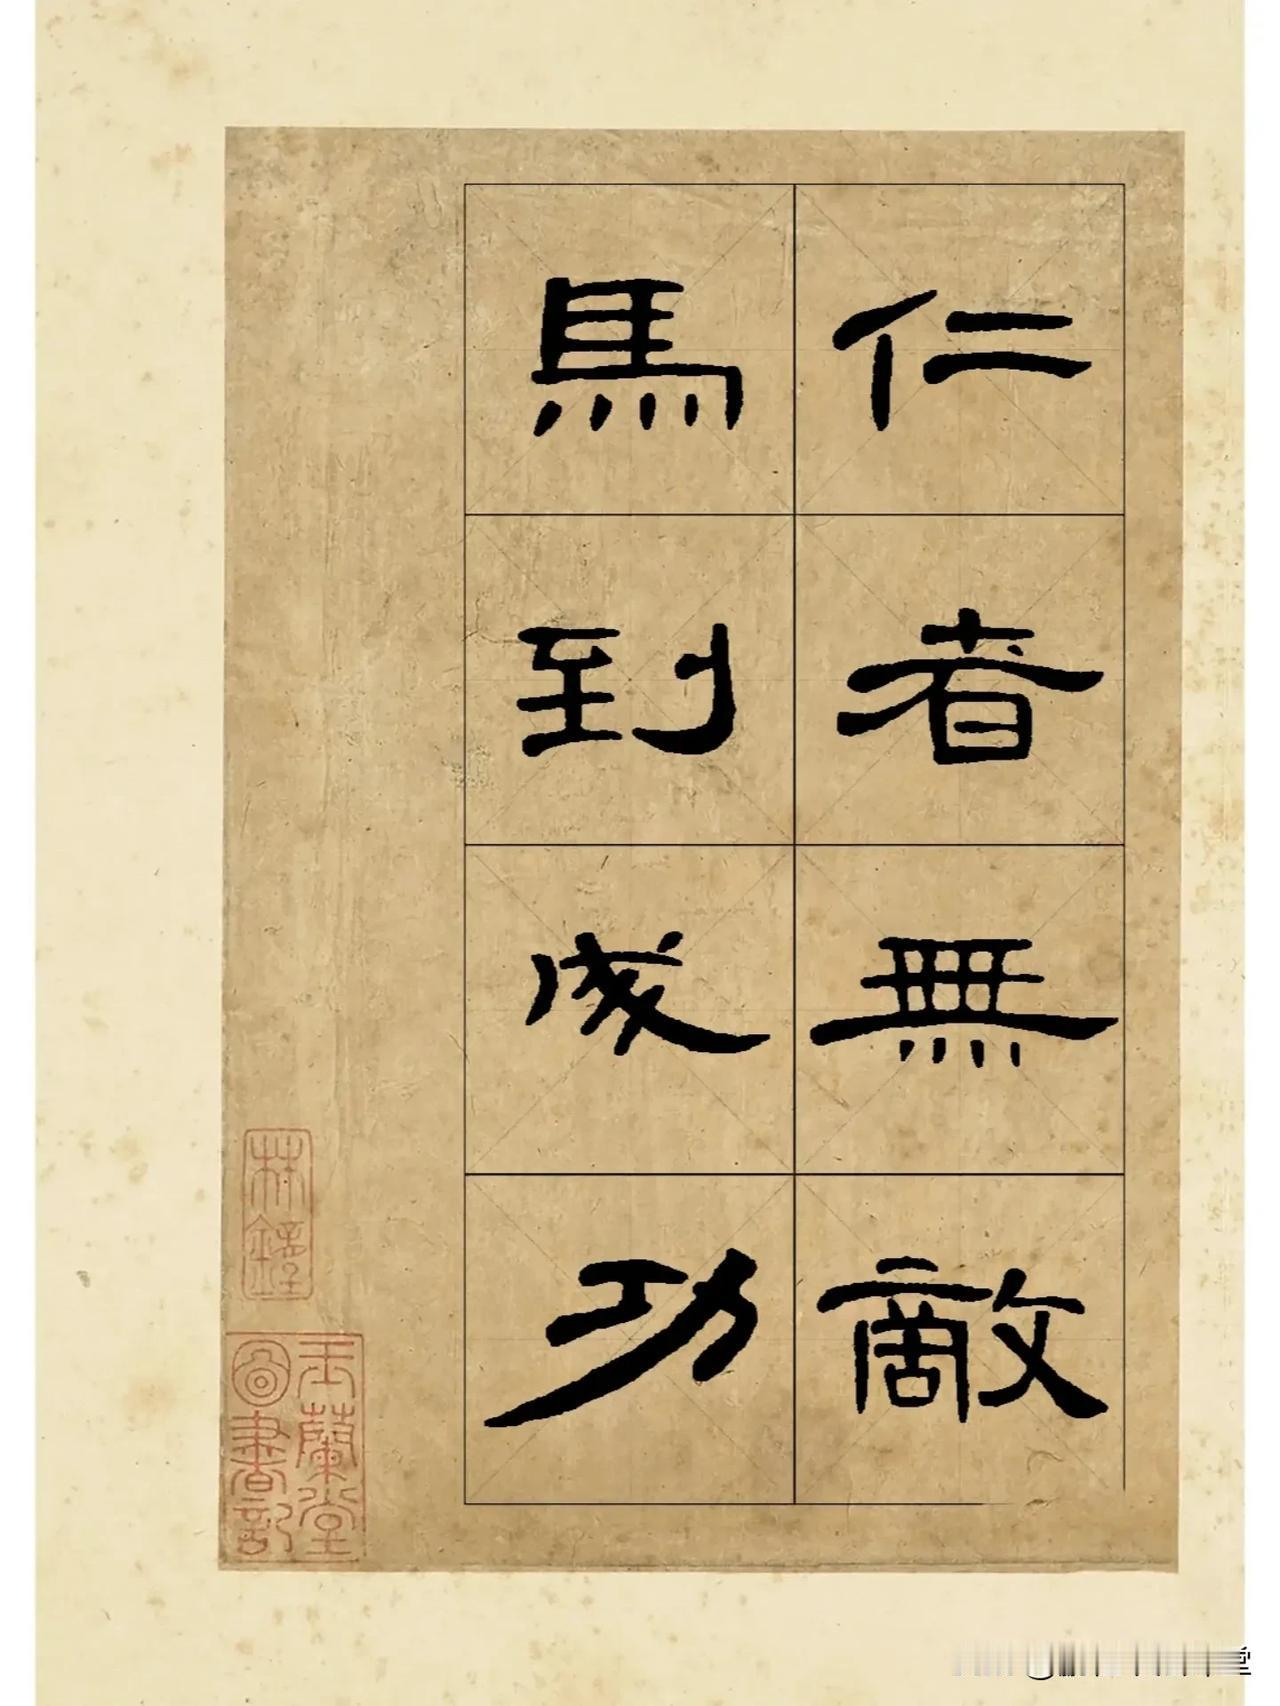 仁者無敵
馬到成功
林鍾
玉蘭堂
圖書記